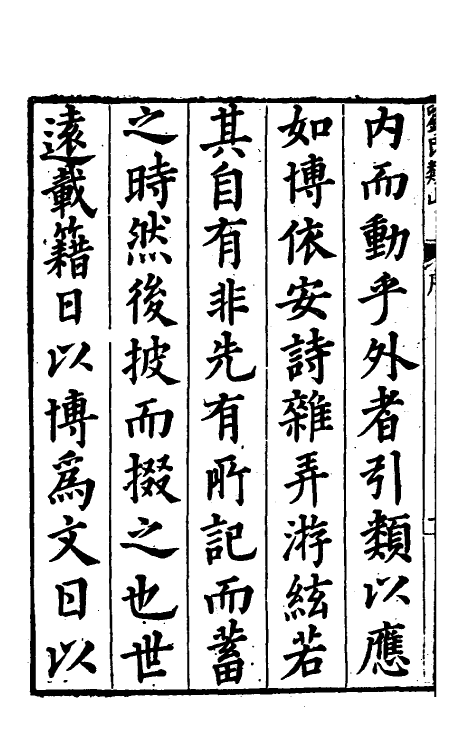 內而動乎外者引類以應
如博依安詩雜弄游絃若
其自有非先有所記而蓄
之時然後披而掇之也世
遠載籍日以博爲文日以